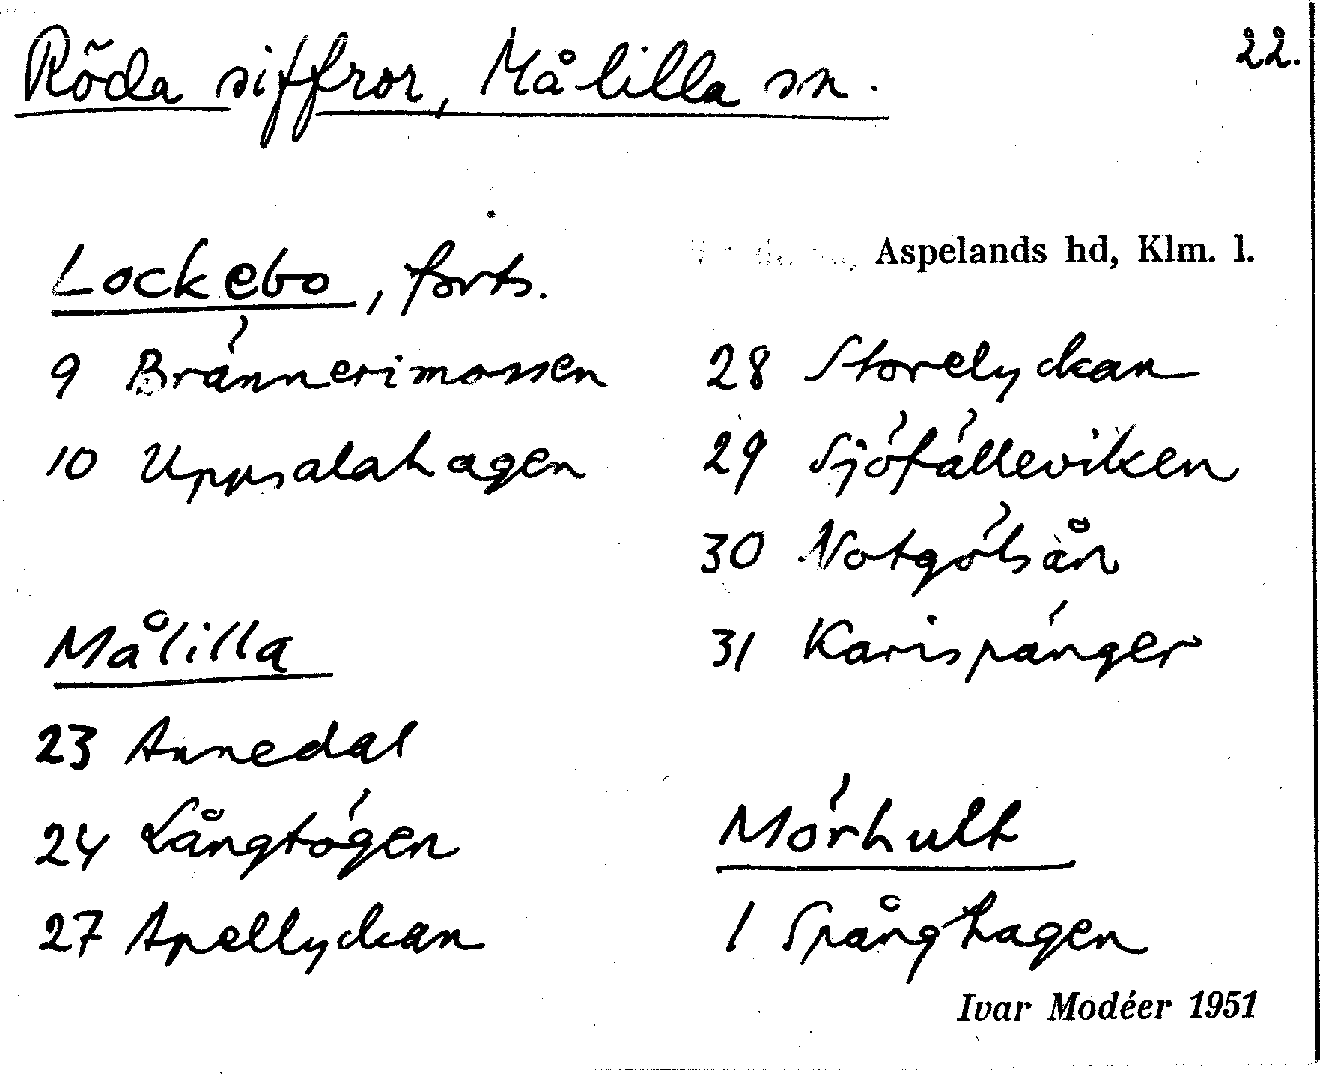 Röda siffror, Målilla sn.
22.
Aspelands hd, Klm. l.
Lockebo, forts.
9 Brännerimossen
10 Uppsalahagen
Målilla
23 Annedal
24 Långtögen
27 Apellyckan
28 Storelyckan
29 Sjöfälleviken
30 Notgölsån
31 Karispänger
Mörhult
1 Spånghagen
Ivar Modéer 1951